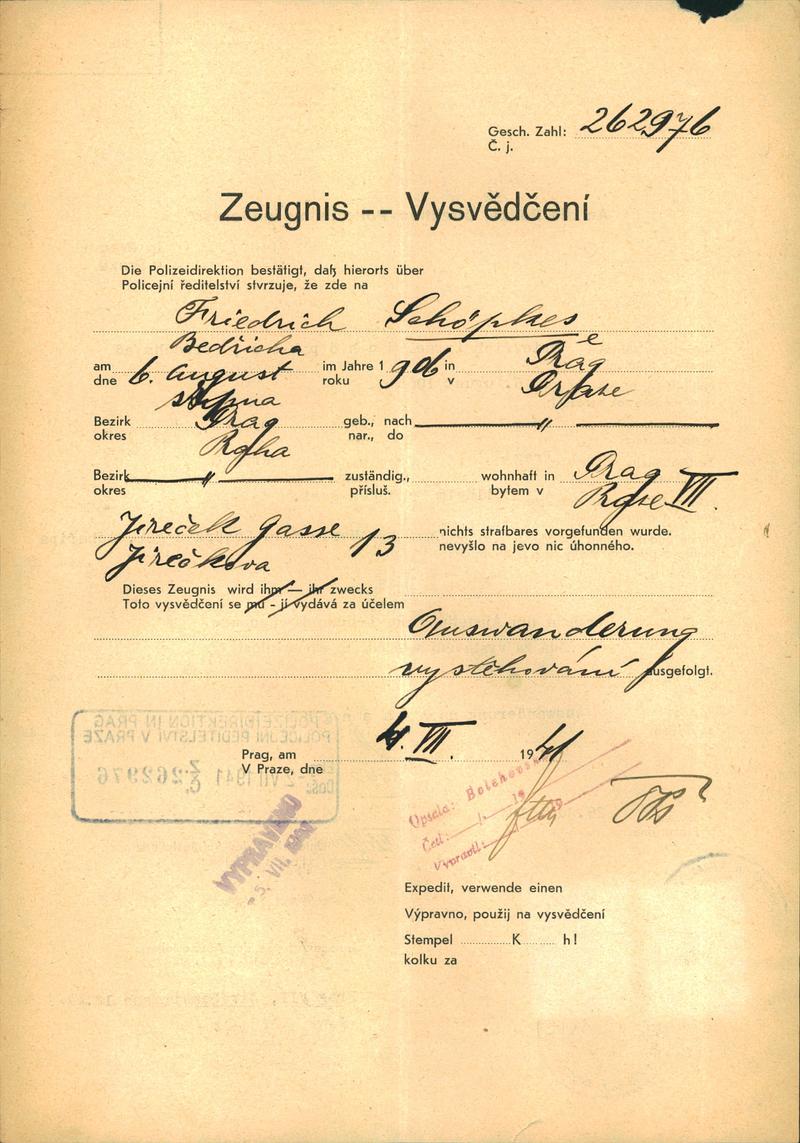 Gesch. Zahl: 262976
Č. j.
Zeugnis -- Vysvědčení
Die Polizeidirektion bestätigt, daß hierorts über
Policejní ředitelství stvrzuje, že zde na
Friedrich
Bedřicha
am 6. august im Jahre 1 906 in Prag
dne srpna roku v Praze
Bezirk Prag geb., nach "
okres Praha nar., do
Bezirk " zuständig., wohnhaft in Prag
okres přísluš. bytem v Praze VII.
Jireček gasse 13 nichts strafbares vorgefunden wurde.
Jirečkova nevyšlo na jevo nic úhonného.
Dieses Zeugnis wird ihm — ihr zwecks
Toto vysvědčení se mu - jí vydává za účelem
Auswanderung
vystěhování ausgefolgt.
Prag, am 4. VII. 1941
V Praze, dne
POLIZEIDIREKTION IN PRAG
POLICEJNÍ ŘEDITELSTVÍ V PRAZE
Došlo: -2 VII 1941 Z. Č. 262976
VYPRAVENO
- 5. VII. 1941
Opsala:
Četl:
Vypravil:
Expedit, verwende einen
Výpravno, použij na vysvědčení
Stempel K h!
kolku za